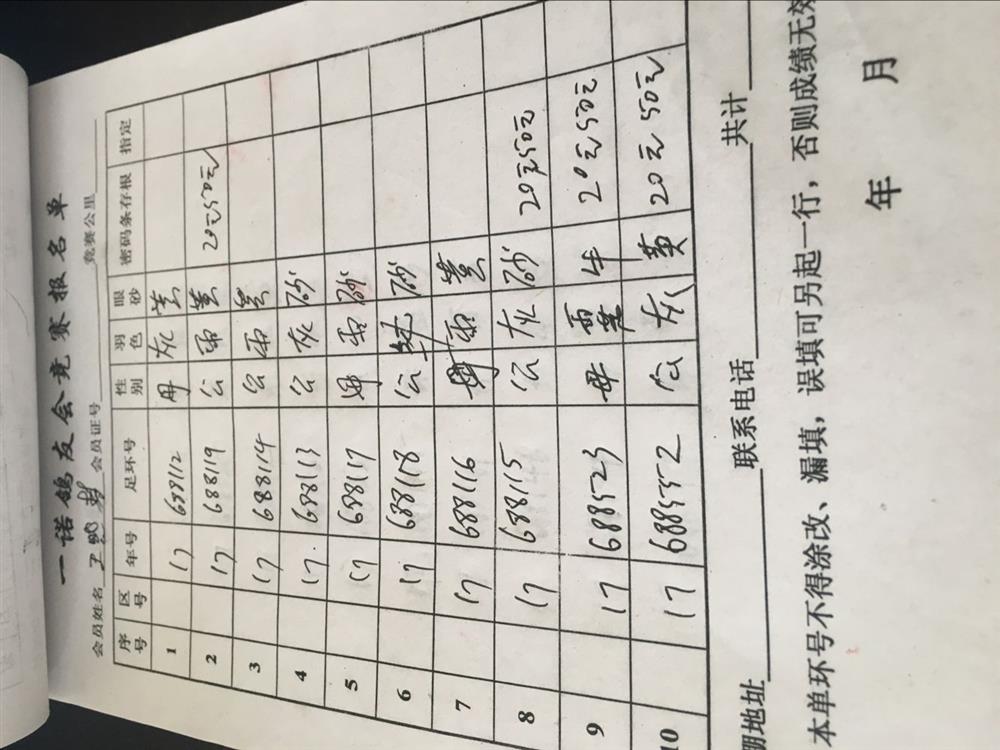 一诺鸽友会竞赛报名单
会员姓名 会员证号 竞赛公里
序号 区号 年号 足环号 性别 羽色 眼砂 密码条存根 指定
1 17 688112 母 灰 黄
2 17 688119 公 雨 黄 20元50元
3 17 688114 公 雨 黄
4 17 688113 公 灰 砂
5 17 688117 母 雨 砂
6 17 688118 公 砂
7 17 688116 母 雨 黄
8 17 688115 公 灰 砂 20元50元
9 17 688523 母 牛 20元50元
10 17 688552 公 灰 黄 20元50元
棚地址 联系电话 共计
本单环号不得涂改、漏填，误填可另起一行，否则成绩无效
年 月